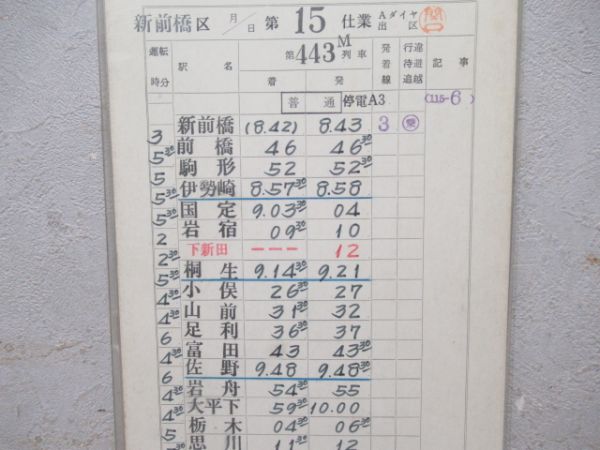 新前橋区 月/日 第 15 仕業 Aダイヤ 出区
運転時分 駅名 第443M列車 着 発 発着線 行違待避追越 記事
普通 停電A3 (115-6)
新前橋 (8.42) 8.43 3
3 前橋 46 46³⁰
5³⁰ 駒形 52 52³⁰
5 伊勢崎 8.57³⁰ 8.58
5³⁰ 国定 9.03³⁰ 04
5³⁰ 岩宿 09³⁰ 10
2 下新田 --- 12
2³⁰ 桐生 9.14³⁰ 9.21
5³⁰ 小俣 26³⁰ 27
4³⁰ 山前 31³⁰ 32
4³⁰ 足利 36³⁰ 37
6 富田 43 43³⁰
4³⁰ 佐野 9.48 9.48³⁰
6 岩舟 54³⁰ 55
4³⁰ 大平下 59³⁰ 10.00
4³⁰ 栃木 04³⁰ 06³⁰
5 思川 11³⁰ 12